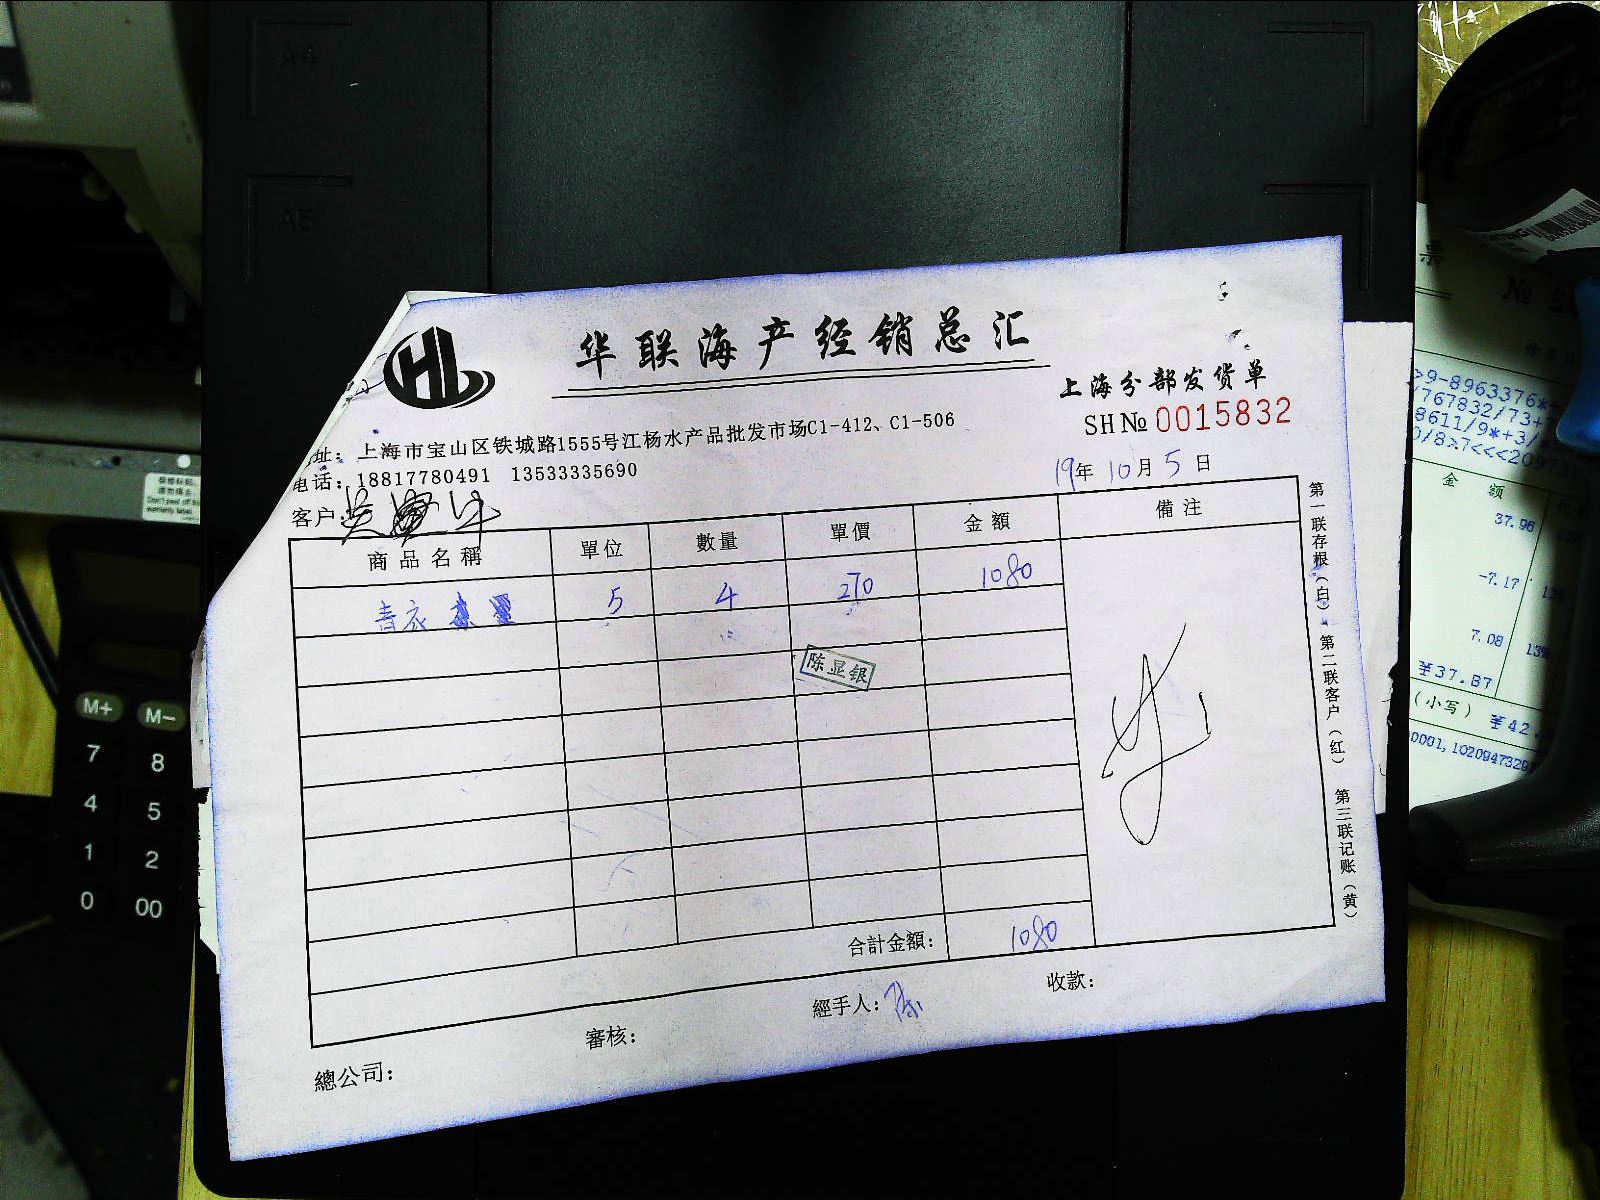 A4
A5
HL
华联海产经销总汇
上海分部发货单
SH№ 0015832
址：上海市宝山区铁城路1555号江杨水产品批发市场C1-412、C1-506
电话：18817780491 13533335690
19年 10月 5日
客户：
商品名稱 單位 數量 單價 金額 備注
青衣 5 4 270 1080
陈显银
合計金額： 1080
總公司： 審核： 經手人：陈 收款：
第一联存根（白） 第二联客户（红） 第三联记账（黄）
M+ M-
7 8
4 5
1 2
0 00
票
№
金 额
37.96
-7.17
7.08
¥37.87
（小写） ¥42.